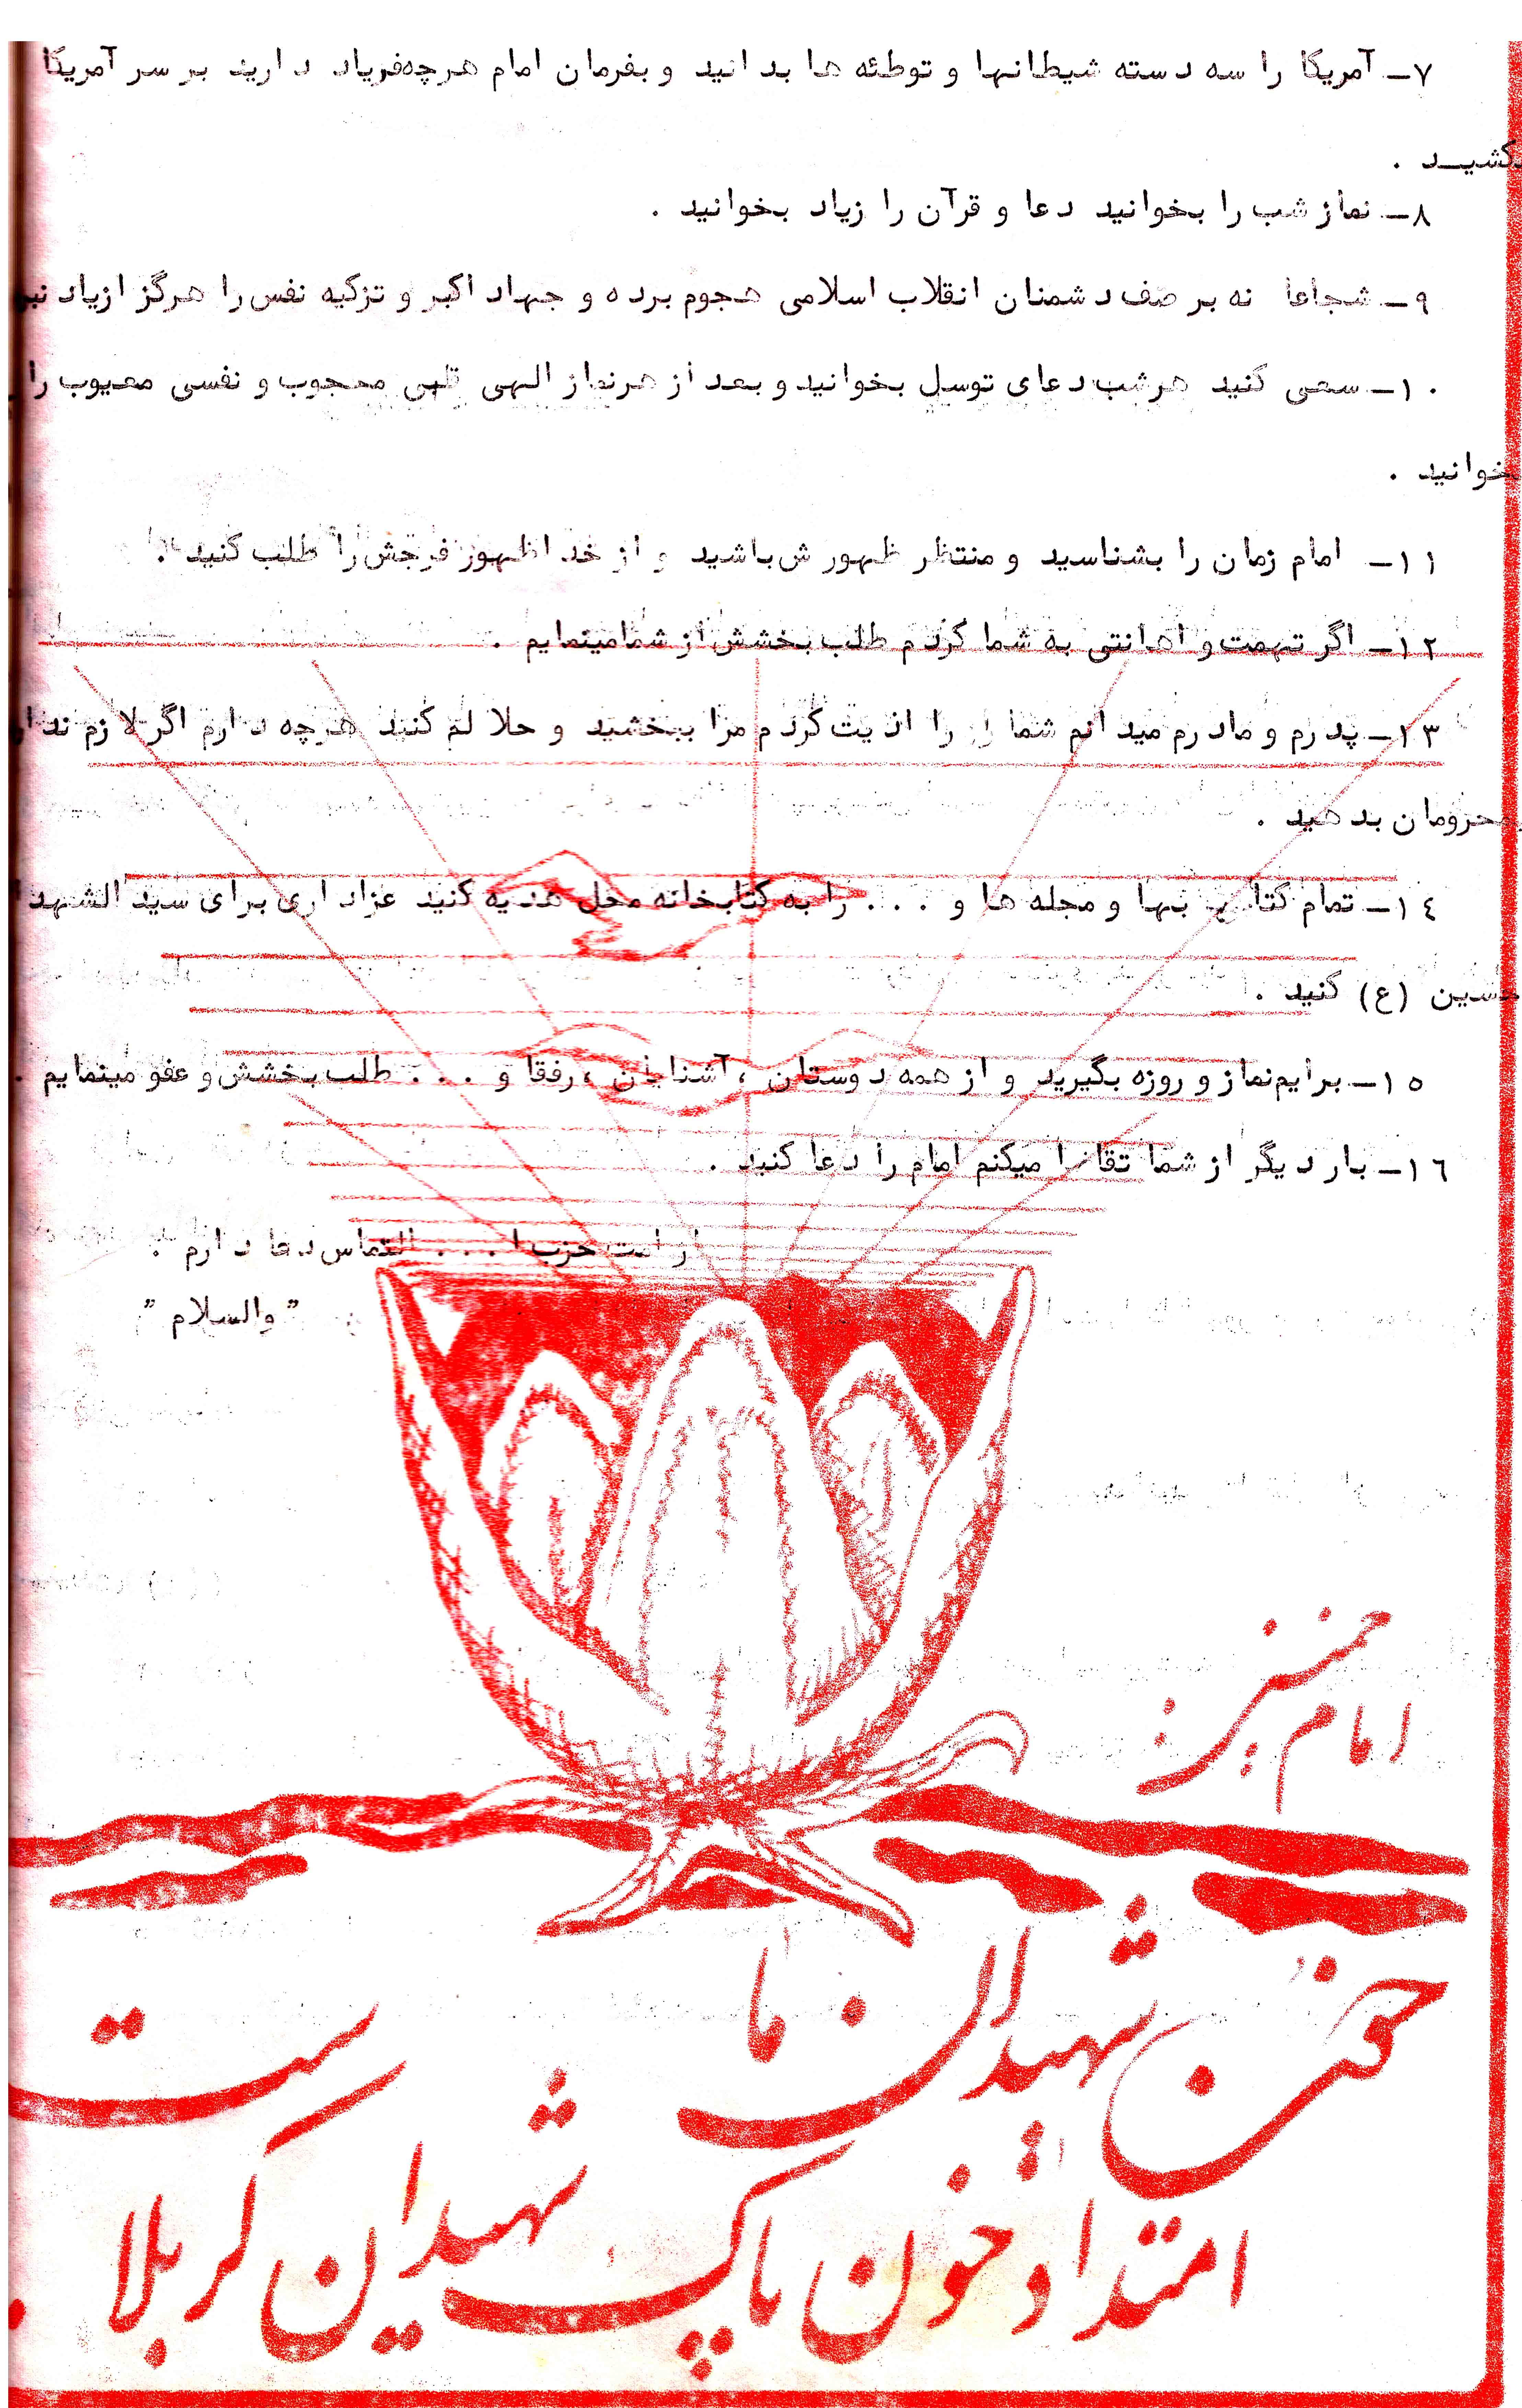 ۷- آمریکا را سه دسته شیطانها و توطئه ها بدانید و بفرمان امام هرچه‌فریاد دارید بر سر آمریکا
بکشید .
۸- نماز شب را بخوانید دعا و قرآن را زیاد بخوانید .
۹- شجاعا نه بر صف دشمنان انقلاب اسلامی هجوم برده و جهاد اکبر و تزکیه نفس را هرگز ازیاد
۱۰- سعی کنید هرشب دعای توسل بخوانید و بعد از هرنماز الهی قلبی محجوب و نفسی معیوب را
بخوانید .
۱۱- امام زمان را بشناسید و منتظر ظهورش باشید و از خدا ظهور فرجش را طلب کنید .
۱۲- اگر تهمت و اهانتی به شما کردم طلب بخشش از شما مینمایم .
۱۳- پدرم و مادرم میدانم شما را اذیت کردم مرا ببخشید و حلالم کنید هرچه دارم اگر لازم
بمحرومان بدهید .
۱٤- تمام کتا بها و مجله ها و . . . را به کتابخانه محل هدیه کنید عزاداری برای سید الشهدا
حسین (ع) کنید .
۱٥- برایم نماز و روزه بگیرید و از همه دوستان ، آشنایان ، رفقا و . . . طلب بخشش و عفو مینمایم .
۱٦- بار دیگر از شما تقاضا میکنم امام را دعا کنید .
از امت حزب ا . . . التماس دعا دارم .
" والسلام "
امام خمینی:
خون شهیدان ما
امتداد خون پاک شهیدان کربلا ست